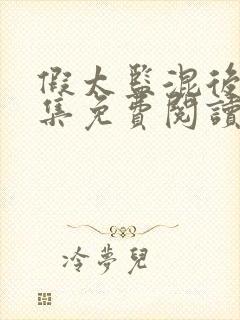 假太監混後
集免費閱讀
冷夢兒